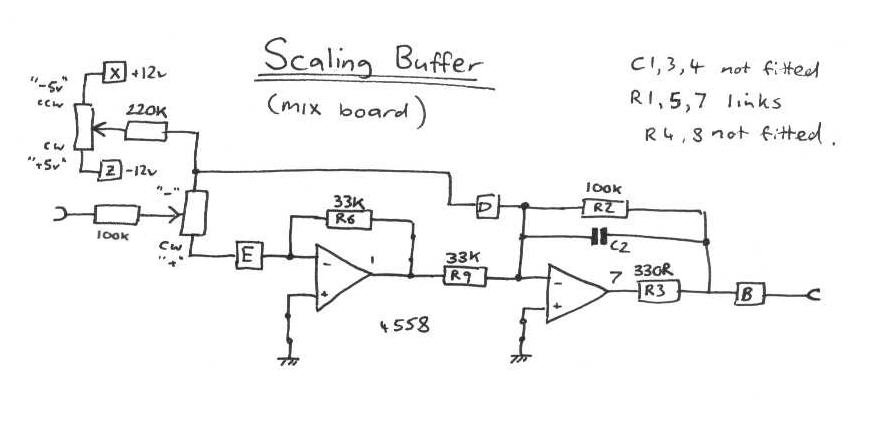 Scaling Buffer
(mix board)
C1,3,4 not fitted
R1,5,7 links
R4,8 not fitted.
"-5v"
ccw
X +12v
220K
cw
"+5v"
Z -12v
"-"
100K
cw
"+"
E
33K
R6
-
+
1
4558
33K
R9
D
100K
R2
C2
-
+
7
330R
R3
B